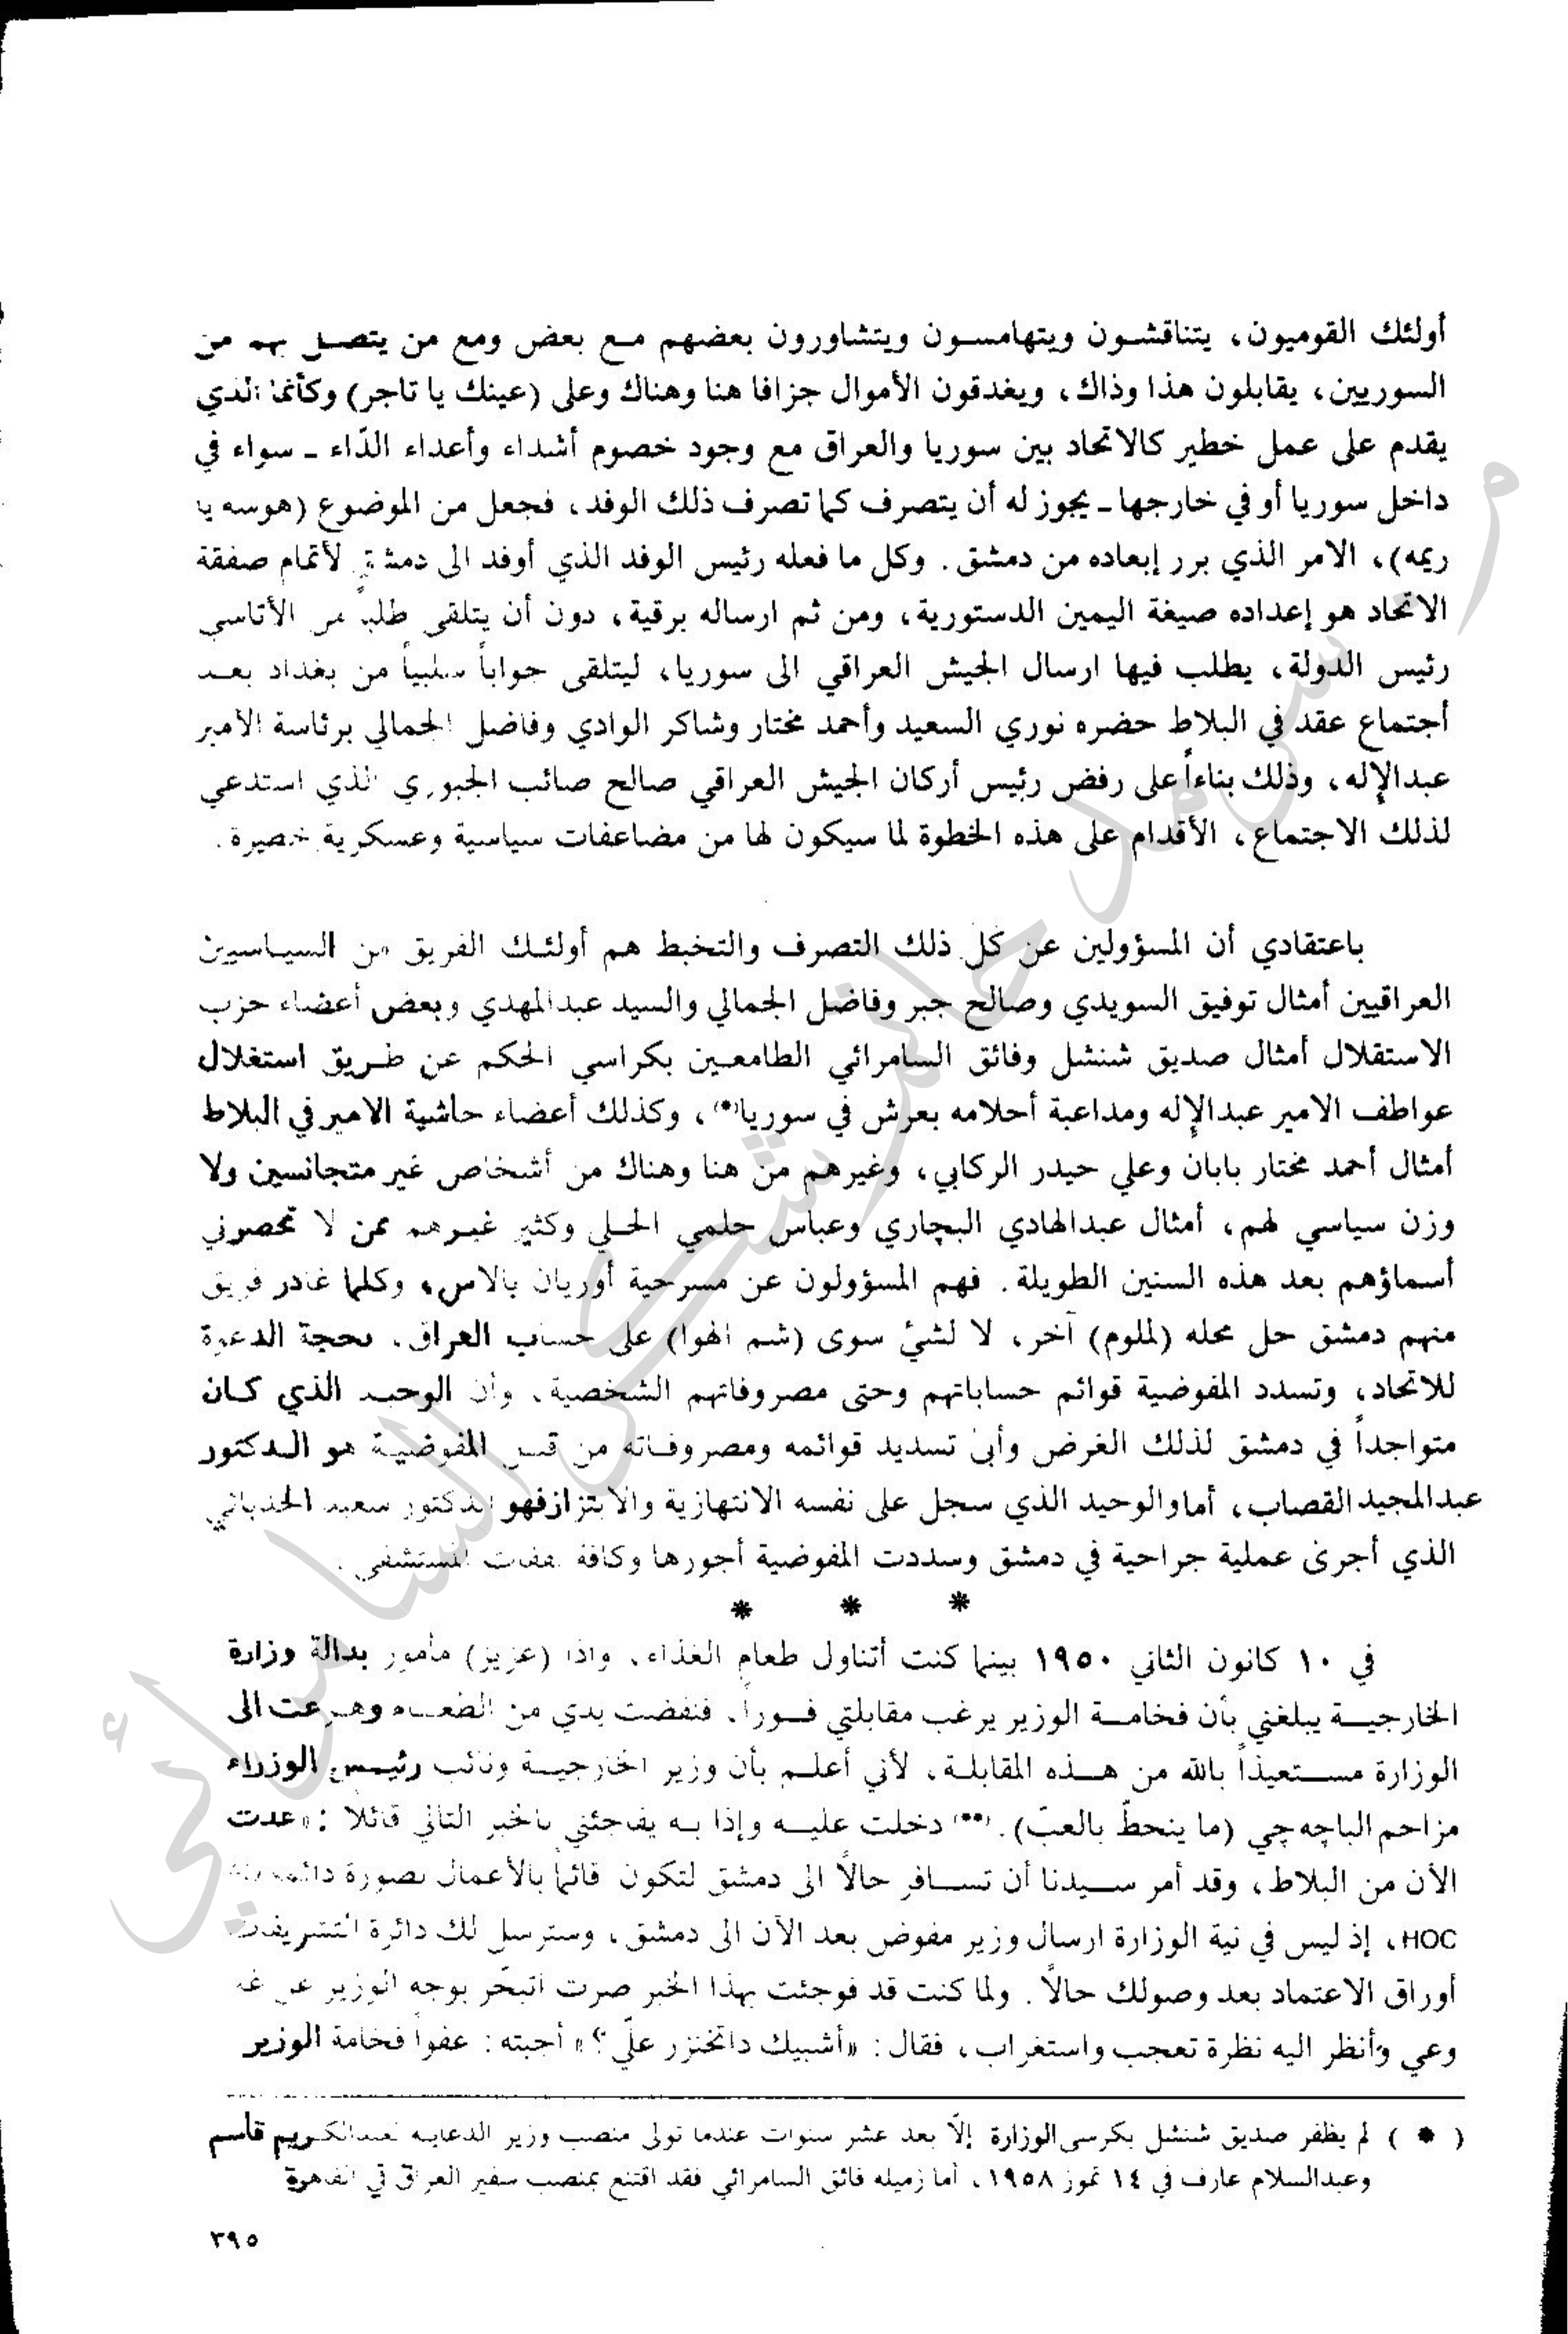 أولئك القوميون، يتناقشون ويتهامسون ويتشاورون بعضهم مع بعض ومع من يتصل بهم من
السوريين، يقابلون هذا وذاك، ويغدقون الأموال جزافا هنا وهناك وعلى (عينك يا تاجر) وكأنما الذي
يقدم على عمل خطير كالاتحاد بين سوريا والعراق مع وجود خصوم أشداء وأعداء الدّاء ـ سواء في
داخل سوريا أو في خارجها ـ يجوز له أن يتصرف كما تصرف ذلك الوفد، فجعل من الموضوع (هوسه يا
ريمه)، الامر الذي برر إبعاده من دمشق. وكل ما فعله رئيس الوفد الذي أوفد الى دمشق لأتمام صفقة
الاتحاد هو إعداده صيغة اليمين الدستورية، ومن ثم ارساله برقية، دون أن يتلقى طلباً من الأتاسي
رئيس الدولة، يطلب فيها ارسال الجيش العراقي الى سوريا، ليتلقى جواباً سلبياً من بغداد بعد
أجتماع عقد في البلاط حضره نوري السعيد وأحمد مختار وشاكر الوادي وفاضل الجمالي برئاسة الامير
عبدالإله، وذلك بناءاً على رفض رئيس أركان الجيش العراقي صالح صائب الجبوري الذي استدعي
لذلك الاجتماع، الأقدام على هذه الخطوة لما سيكون لها من مضاعفات سياسية وعسكرية خطيرة.
باعتقادي أن المسؤولين عن كل ذلك التصرف والتخبط هم أولئك الفريق من السياسيين
العراقيين أمثال توفيق السويدي وصالح جبر وفاضل الجمالي والسيد عبدالمهدي وبعض أعضاء حزب
الاستقلال أمثال صديق شنشل وفائق السامرائي الطامعين بكراسي الحكم عن طريق استغلال
عواطف الامير عبدالإله ومداعبة أحلامه بعرش في سوريا(*)، وكذلك أعضاء حاشية الامير في البلاط
أمثال أحمد مختار بابان وعلي حيدر الركابي، وغيرهم من هنا وهناك من أشخاص غير متجانسين ولا
وزن سياسي لهم، أمثال عبدالهادي البچاري وعباس حلمي الحلي وكثير غيرهم ممن لا تحصرني
أسماؤهم بعد هذه السنين الطويلة. فهم المسؤولون عن مسرحية أوريان بالاس، وكلما غادر فريق
منهم دمشق حل محله (لملوم) آخر، لا لشئ سوى (شم الهوا) على حساب العراق. بحجة الدعوة
للاتحاد، وتسدد المفوضية قوائم حساباتهم وحتى مصروفاتهم الشخصية. وأن الوحيد الذي كان
متواجداً في دمشق لذلك الغرض وأبى تسديد قوائمه ومصروفاته من قبل المفوضية هو الدكتور
عبدالمجيد القصاب، أما والوحيد الذي سجل على نفسه الانتهازية والابتزاز فهو الدكتور سعيد
الذي أجرى عملية جراحية في دمشق وسددت المفوضية أجورها وكافة نفقات المستشفى.
* * *
في ١٠ كانون الثاني ١٩٥٠ بينما كنت أتناول طعام الغذاء. واذا (عزيز) مأمور بدالة وزارة
الخارجية يبلغني بأن فخامة الوزير يرغب مقابلتي فوراً. فنفضت يدي من الطعام وهرعت الى
الوزارة مستعيذاً بالله من هذه المقابلة، لأني أعلم بأن وزير الخارجية ونائب رئيس الوزراء
مزاحم الباچه چي (ما ينحطّ بالعبّ).(**) دخلت عليه وإذا به يفاجئني بالخبر التالي قائلاً: «عدت
الأن من البلاط، وقد أمر سيدنا أن تسافر حالاً الى دمشق لتكون قائماً بالأعمال بصورة
HOC، إذ ليس في نية الوزارة ارسال وزير مفوض بعد الآن الى دمشق، وسترسل لك دائرة التشريفات
أوراق الاعتماد بعد وصولك حالاً. ولما كنت قد فوجئت بهذا الخبر صرت اتبحّر بوجه الوزير
وعي وأنظر اليه نظرة تعجب واستغراب، فقال: «أشبيك داتخنزر عليّ؟» أجبته: عفواً فخامة الوزير
( * ) لم يظفر صديق شنشل بكرسي الوزارة إلّا بعد عشر سنوات عندما تولى منصب وزير الدعاية لعبدالكريم قاسم
وعبدالسلام عارف في ١٤ تموز ١٩٥٨، أما زميله فائق السامرائي فقد اقتنع بمنصب سفير العراق في القاهرة
٣٩٥